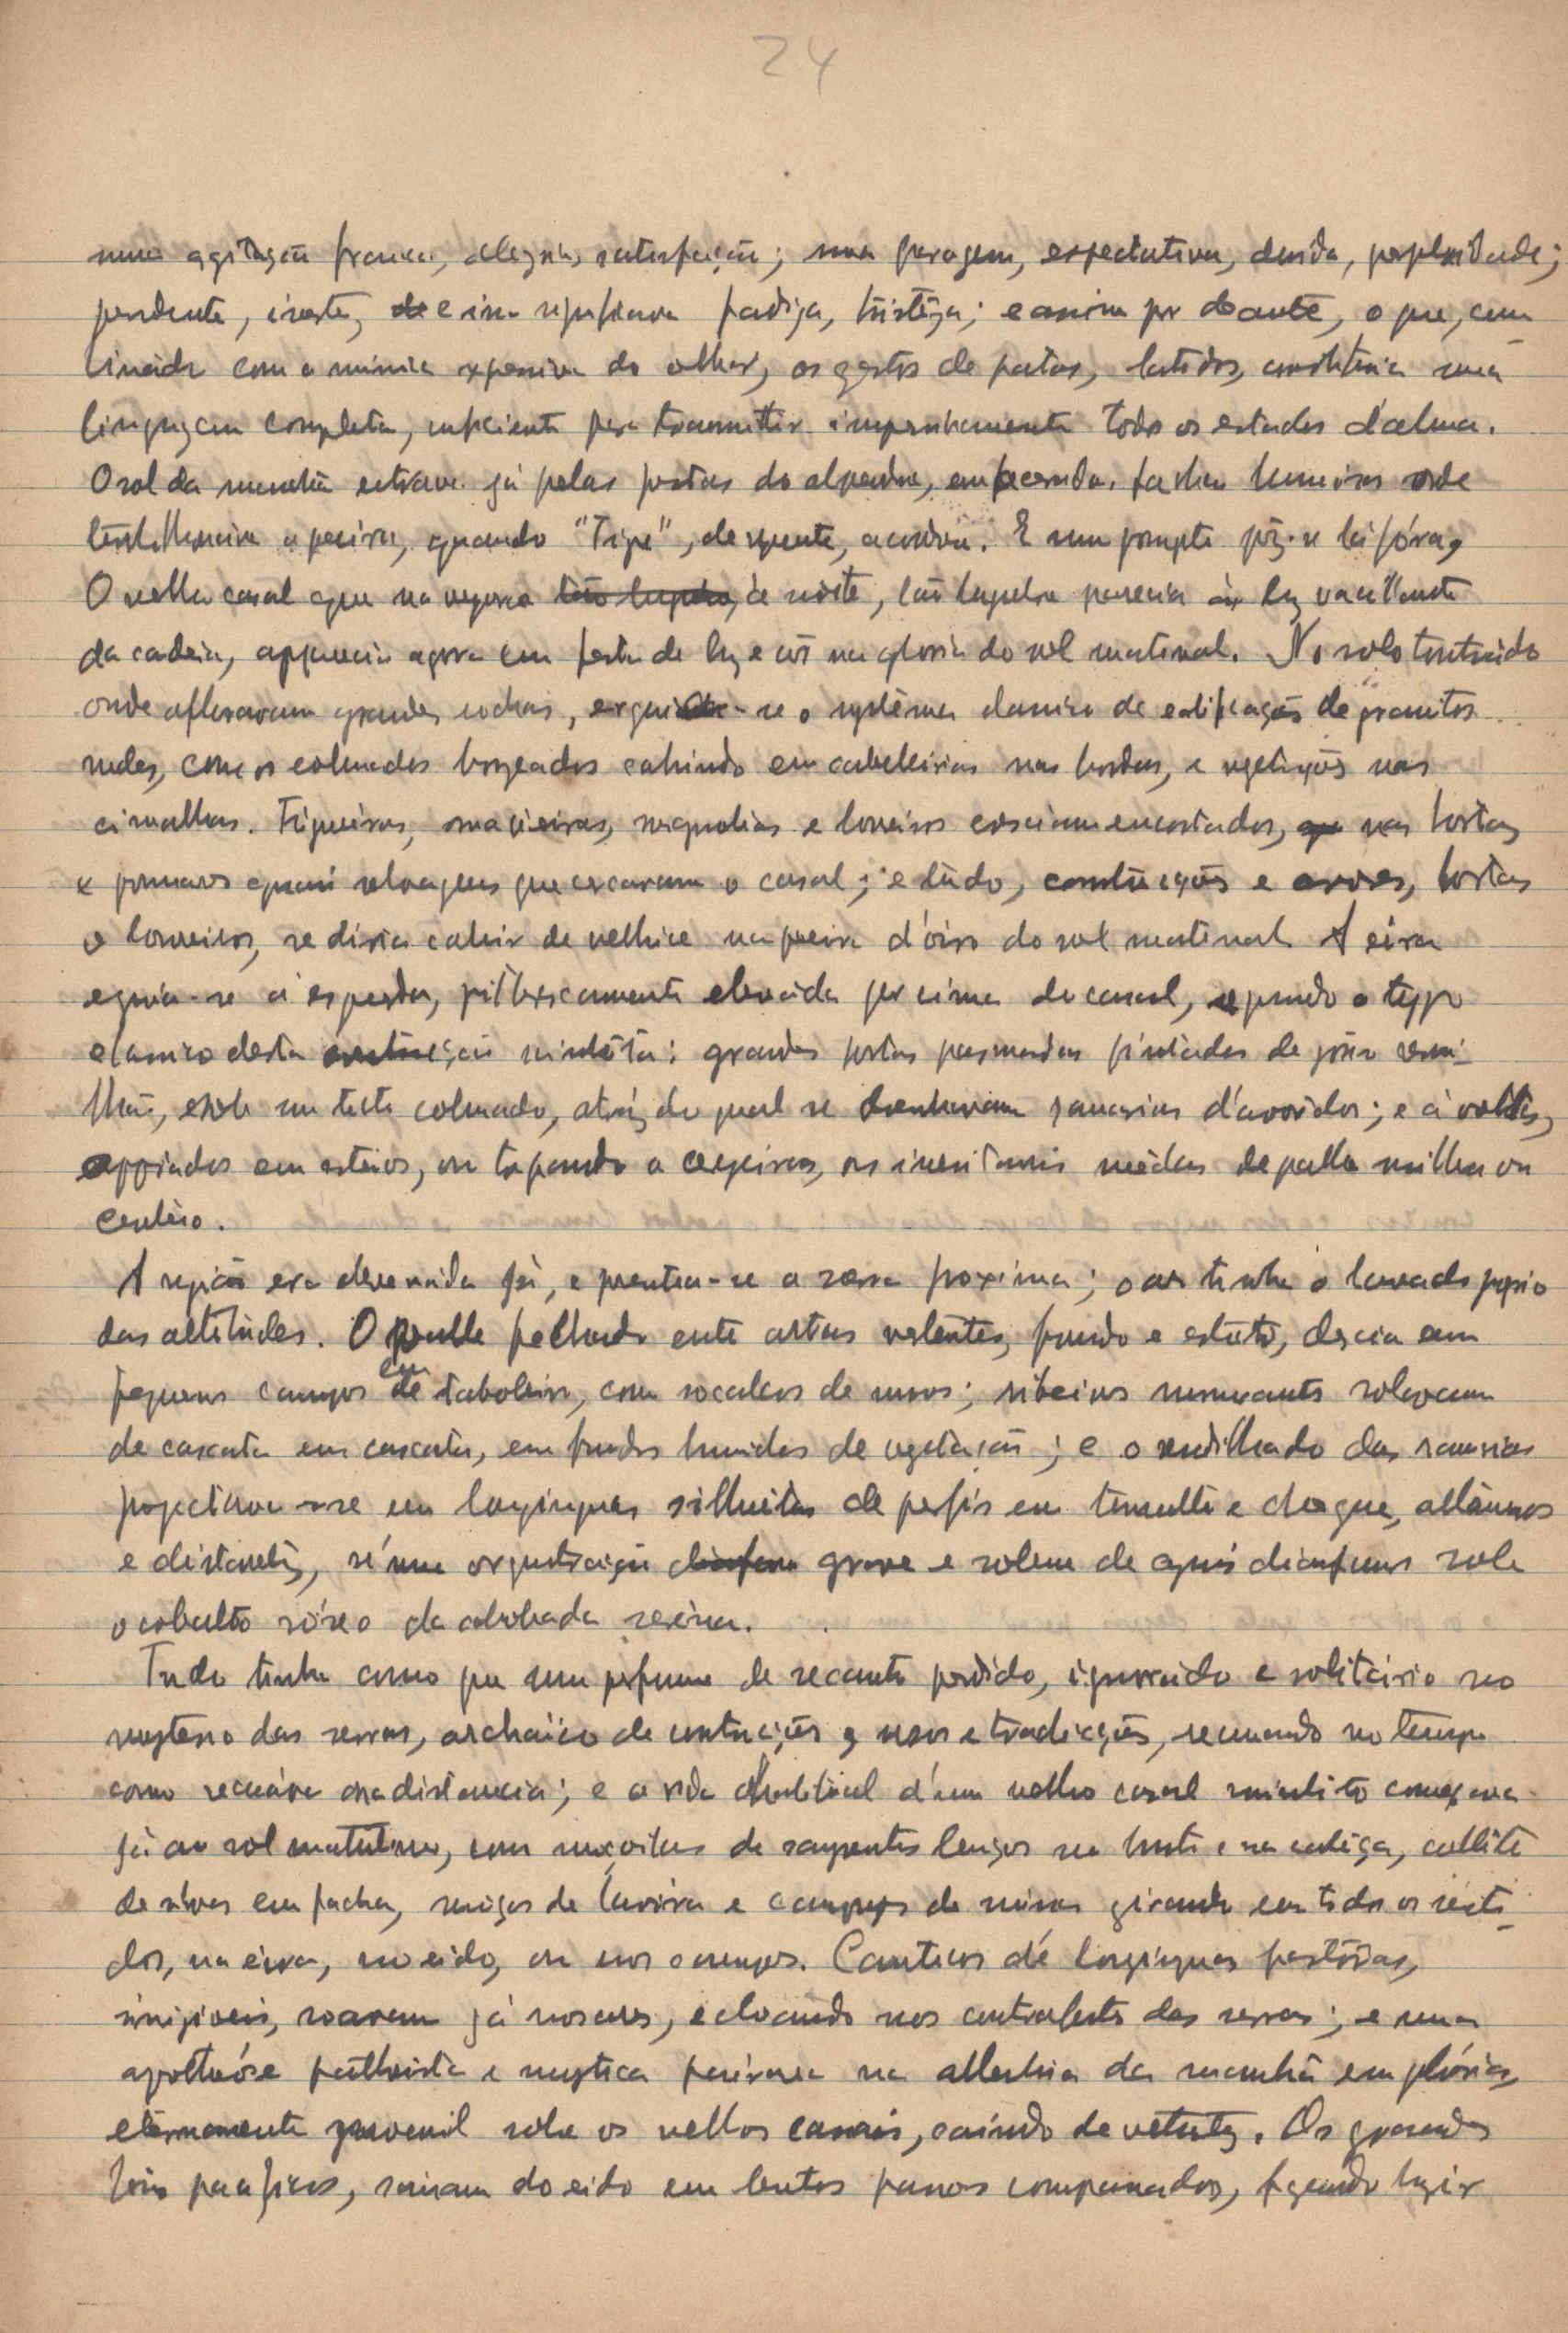 24
numa agitação franca, alegria, satisfação; uma paragem, espectativa, duvida, perplexidade;
pendente, inerte, e isso significava fadiga, tristêza; e assim por deante, o que, com
binado com a mimica expressiva do olhar, os gestos de patas, latidos, constituia uma
linguagem completa, sufficiente para transmittir todos os estados d'alma.
O sol da manhã entrava já pelas portas do alpendre, em faxas luminosas onde
a poeira, quando "Tigre", de repente, acordou. E num prompto pôz-se lá fóra,
O velho casal que na vespera tão lugubre, á noite, tão lugubre parecia á luz vacillante
da candeia, apparecia agora em festa de luz e côr na gloria do sol matinal. No solo
onde afloravam grandes rochas, erguia-se o systêma classico de edificações de granitos
rudes, com os colmados cahindo em cabelleiras nas bordas, e vegetações nas
cimalhas. Figueiras, macieiras, magnolias e loureiros cresciam encostados, nas hortas
e pomares quasi selvagens que cercavam o casal; e tudo, construcções e arvores, hortas
e loureiros, se diria cahir de velhice na poeira d'oiro do sol matinal. A eira
erguia-se á esquerda, pittorescamente elevada por cima do casal, segundo o typo
classico desta construcção minhôta: grandes portas pintadas de rôxo verme-
lhão, sob um tecto colmado, atráz do qual se desenhavam ramarias d'arvoredos; e á volta,
appoiados em esteios, ou tapando a cerejeiras, as inevitaveis mêdas de palha milha ou
centeio.
A região era já, e presentia-se a serra proxima; o ar tinha o lavado proprio
das altitudes. O valle fechado entre vertentes, fundo e estreito, descia em
pequenos campos em taboleiro, com socalcos de muros; ribeiros murmurantes rolavam
de cascata em cascata, em fundos humidos de vegetação; e o rendilhado das ramarias
projectava-se em longinquas silhuetas de perfis em tumulto e choque, altissimos
e distantes, n'uma orquestração diafana grave e solene de diafanos sob
o cobalto róseo da abobada serêna.
Tudo tinha como que um perfume de recanto perdido, ignorado e solitário no
mysterio das serras, archaico de construcções, usos e tradicções, recuando no tempo
como recuára na distancia; e a vida habitual d'um velho casal minhôto começava
já ao sol matutino, com moçoilas de lenços no busto e na cabeça, collete
de em facha, moços de lavoira e girando em todos os senti-
dos, na eira, no eido, ou nos campos. Canticos de longinquas pastôras,
invisiveis, soavam já nos ares, echoando nos contrafortes das serras; e uma
apotheóse pantheista e mystica pairava na alleluia da manhã em glória,
eternamente juvenil sobre os velhos casais, caindo de vetustez. Os grandes
bois pacificos, saiam do eido em lentos passos compassados, fazendo luzir